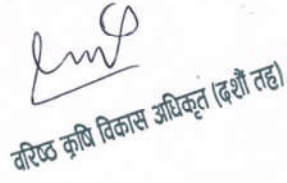 वरिष्ठ कृषि विकास अधिकृत (दशौं तह)